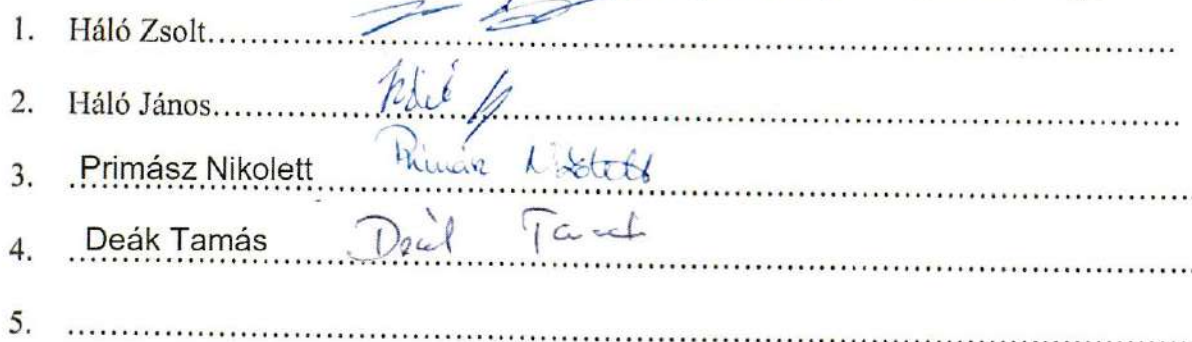 1. Háló Zsolt
2. Háló János
3. Primász Nikolett Primász Nikolett
4. Deák Tamás Deák Tamás
5.